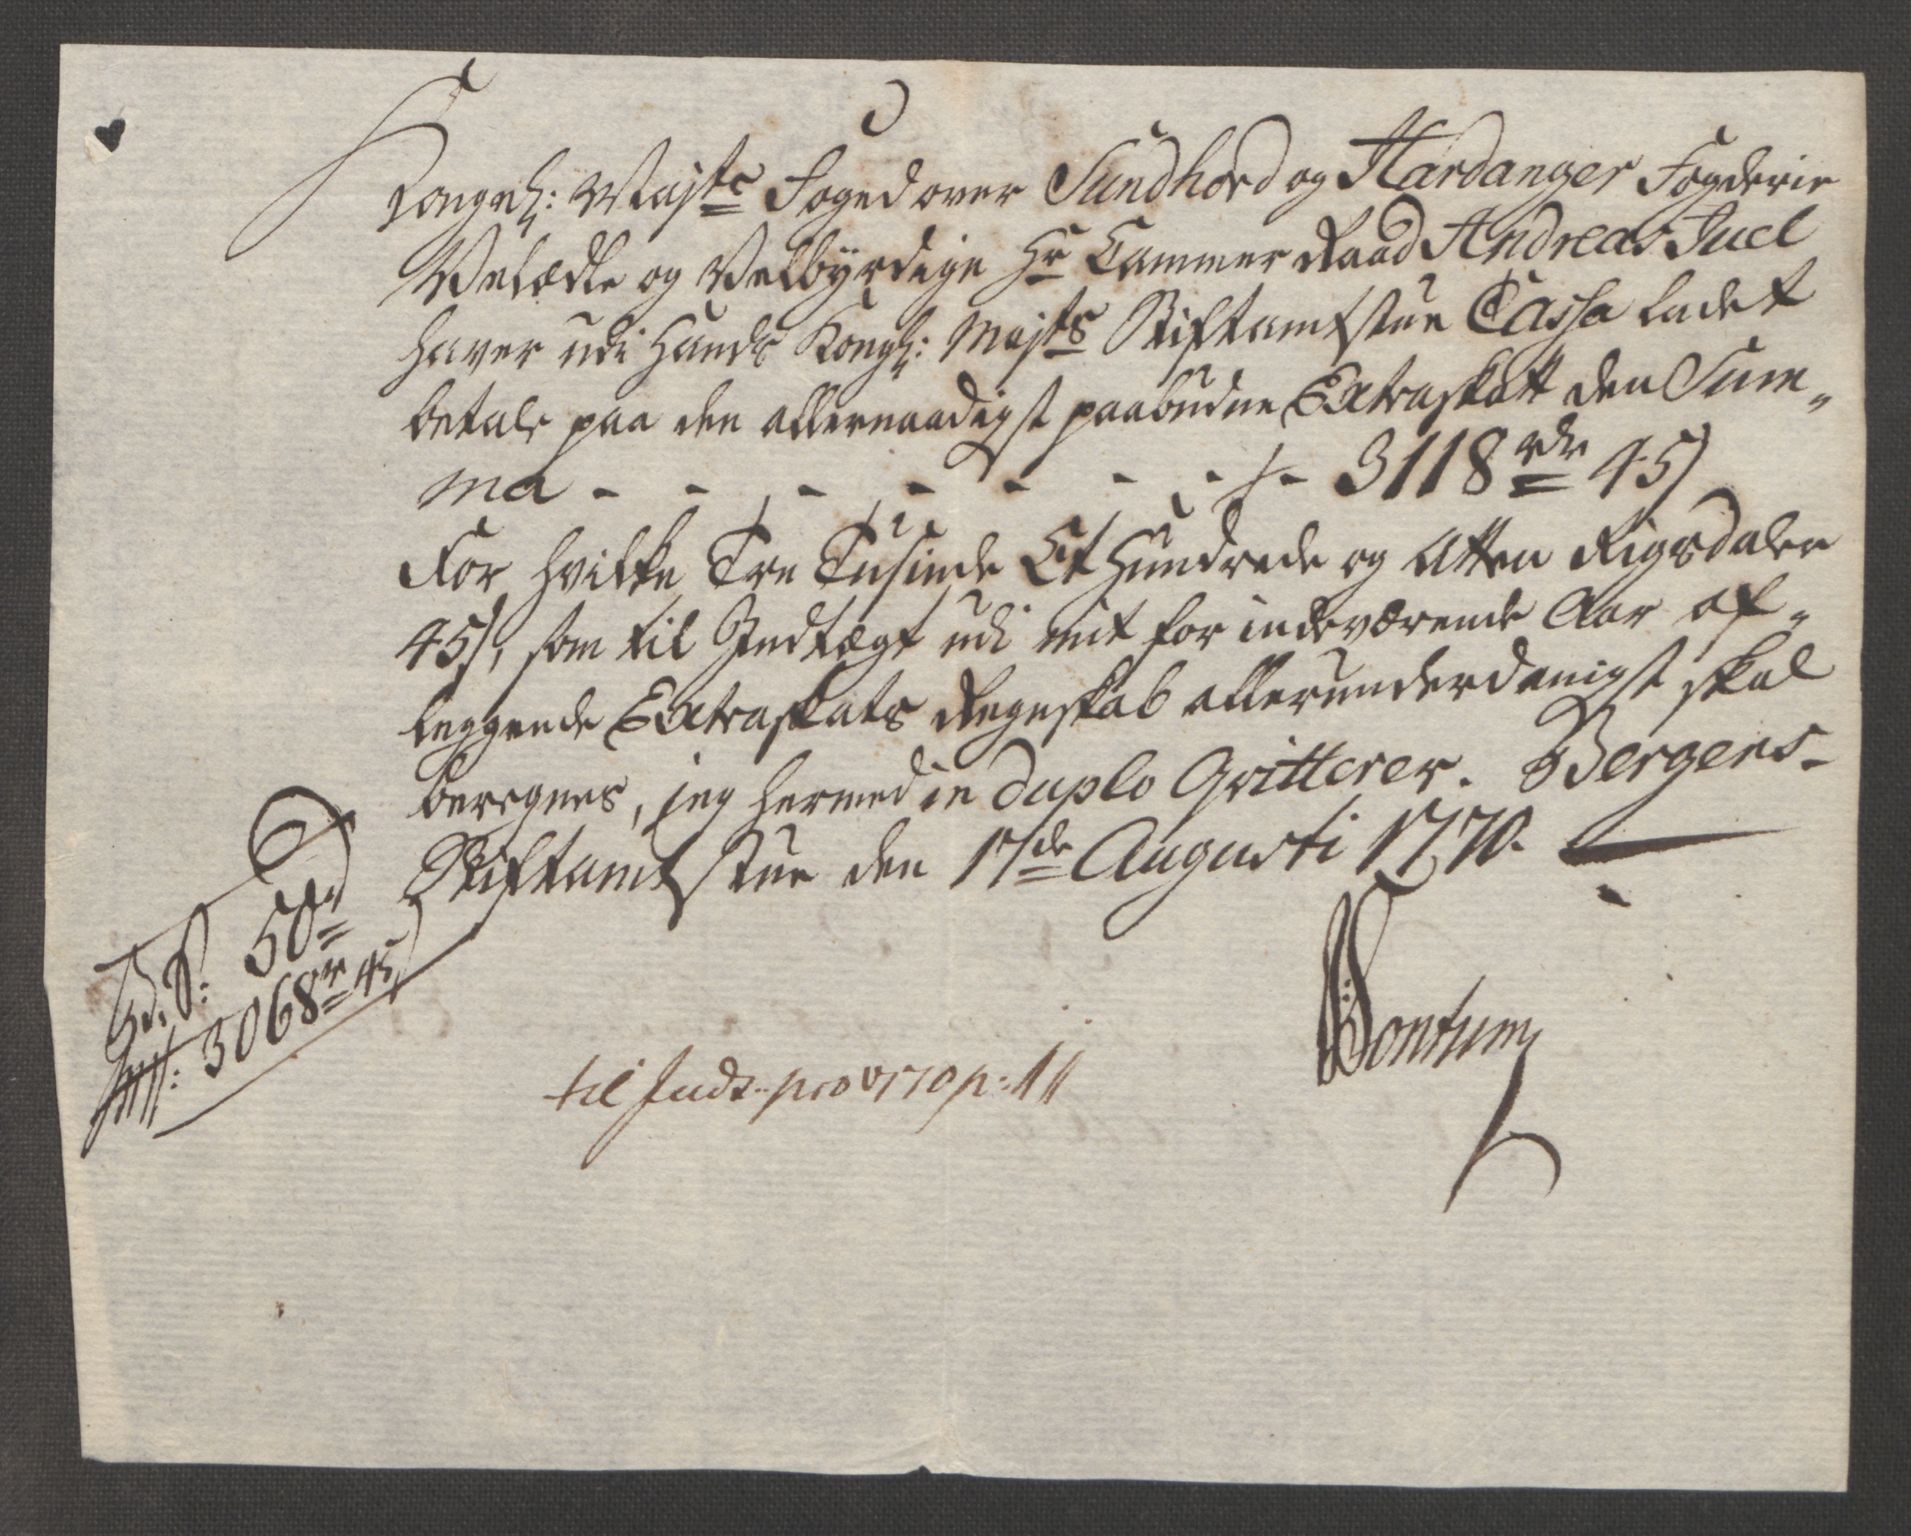 Kongel: Maj^ts Foged over Sundhord og Hardanger Fogderie
Velædle og Velbyrdige Hr Cammer Raad Andreas Juel
haver udi Hands Kongl: Majts Stiftamtstue Cassa ladet
betale paa den allernaadigst paabudne Extraskatt den Sum-
ma - - - - - - - 3118 rdr 45 ß
For hvilke Tre Tusinde Et Hundrede og Atten Rigsdaler
45 ß, som til Indtægt udi mit for indeværende Aar af-
leggende Extraskats Regnskab allerunderdanigst skal
beregnes, jeg hermed in duplo Qvitterer. Bergens-
Stiftamtstue den 17de Augusti 1770.
B. S: 50 r
3068 r 45
til Indt. pro 1770 p: 11